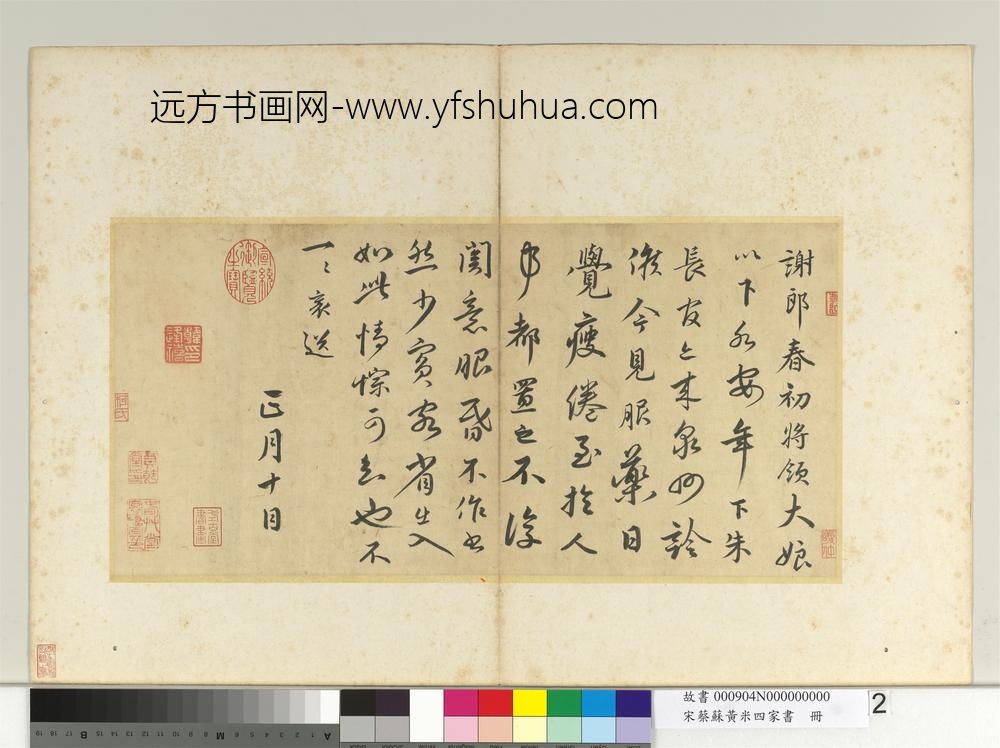 远方书画网-www.yfshuhua.com
謝郎春初將領大娘
以下各安年下朱
長官亡來泉州診
候今見服藥日
覺瘦倦至於人
事都置之不復
關意眼昏不作書
然少賓客省出入
如此情悰可知也不
一一襄送
正月十日
宣統御覽之寶
故書 000904N000000000
宋蔡蘇黃米四家書 冊
2